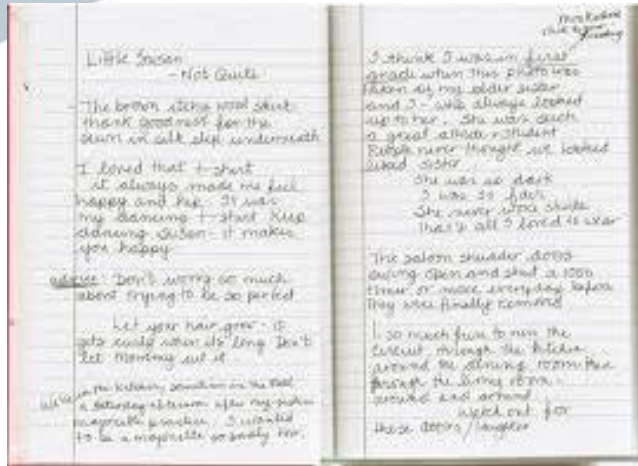 Little Susan
- Not Quite
The brown itchy wool skirt
thank goodness for the
sewn in silk slip underneath
I loved that t-shirt
it always made me feel
happy and hip. It was
my dancing t-shirt Keep
dancing Susan - it makes
you happy
advice: Don't worry so much
about trying to be so perfect
Let your hair grow - it
gets curly when its long Don't
let Mommy cut it
in the kitchen, sometime in the
a Saturday afternoon after my
majorette practice. I wanted
to be a majorette so badly
I think I was in first
grade when this photo was
taken of my older sister
and I - who always looked
up to her. She was such
a great student
People never thought we looked
liked sister
She was so dark
I was so fair
She never wore skirts
that's all I loved to wear
The saloon shudder doors
swing open and shut a 1000
times or more everyday before
they were finally removed
so much fun to run the
circuit through the kitchen
around the dining room then
through the living room -
around and around
watch out for
those doors/laughter